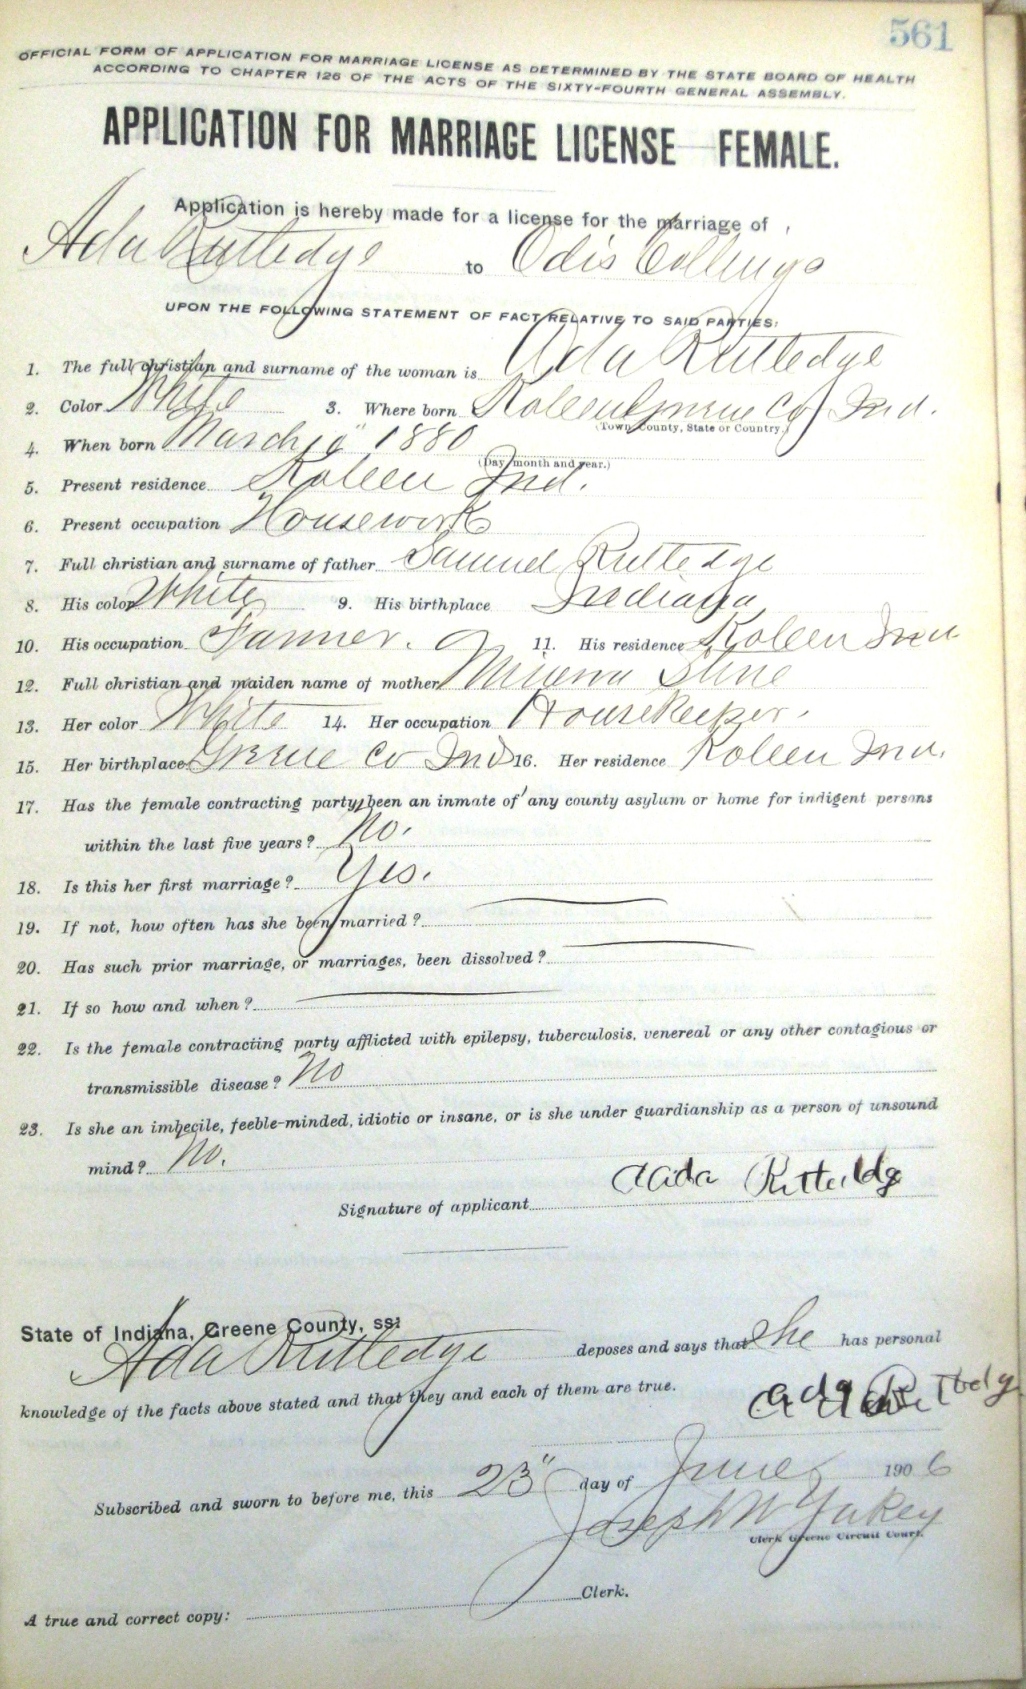 561
OFFICIAL FORM OF APPLICATION FOR MARRIAGE LICENSE AS DETERMINED BY THE STATE BOARD OF HEALTH
ACCORDING TO CHAPTER 126 OF THE ACTS OF THE SIXTY-FOURTH GENERAL ASSEMBLY.
APPLICATION FOR MARRIAGE LICENSE FEMALE.
Application is hereby made for a license for the marriage of
Ada Rutledge to Odis Collings
UPON THE FOLLOWING STATEMENT OF FACT RELATIVE TO SAID PARTIES:
1. The full christian and surname of the woman is Ada Rutledge
2. Color White 3. Where born Koleen Greene Co Ind.
(Town, County, State or Country.)
4. When born March 1880
(Day, month and year.)
5. Present residence Koleen Ind.
6. Present occupation Housework
7. Full christian and surname of father Samuel Rutledge
8. His color White 9. His birthplace Indiana
10. His occupation Farmer. 11. His residence Koleen Ind
12. Full christian and maiden name of mother
13. Her color White 14. Her occupation Housekeeper.
15. Her birthplace Greene Co Ind 16. Her residence Koleen Ind.
17. Has the female contracting party been an inmate of any county asylum or home for indigent persons
within the last five years? No.
18. Is this her first marriage? Yes.
19. If not, how often has she been married?
20. Has such prior marriage, or marriages, been dissolved?
21. If so how and when?
22. Is the female contracting party afflicted with epilepsy, tuberculosis, venereal or any other contagious or
transmissible disease? No
23. Is she an imbecile, feeble-minded, idiotic or insane, or is she under guardianship as a person of unsound
mind? No.
Signature of applicant
State of Indiana, Greene County, ss:
Ada Rutledge deposes and says that she has personal
knowledge of the facts above stated and that they and each of them are true.
Subscribed and sworn to before me, this 23" day of June 1906
Joseph W Yakey
Clerk Greene Circuit Court.
A true and correct copy: Clerk.